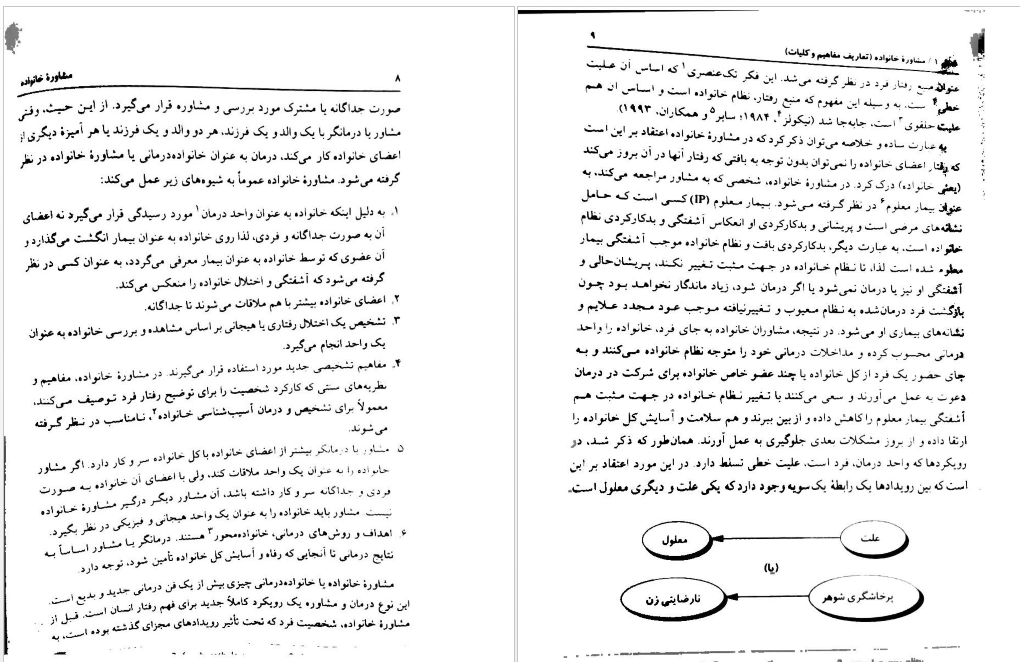 ۸
مشاورهٔ خانواده
صورت جداگانه یا مشترک مورد بررسی و مشاوره قرار می‌گیرد. از این حیث، وقتی
مشاور با درمانگر با یک والد و یک فرزند، هر دو والد و یک فرزند یا هر آمیزهٔ دیگری از
اعضای خانواده کار می‌کند، درمان به عنوان خانواده‌درمانی یا مشاورهٔ خانواده در نظر
گرفته می‌شود. مشاورهٔ خانواده عموماً به شیوه‌های زیر عمل می‌کند:
۱. به دلیل اینکه خانواده به عنوان واحد درمان۱ مورد رسیدگی قرار می‌گیرد نه اعضای
آن به صورت جداگانه و فردی، لذا روی خانواده به عنوان بیمار انگشت می‌گذارد و
آن عضوی که توسط خانواده به عنوان بیمار معرفی می‌گردد، به عنوان کسی در نظر
گرفته می‌شود که آشفتگی و اختلال خانواده را منعکس می‌کند.
۲. اعضای خانواده بیشتر با هم ملاقات می‌شوند تا جداگانه.
۳. تشخیص یک اختلال رفتاری یا هیجانی بر اساس مشاهده و بررسی خانواده به عنوان
یک واحد انجام می‌گیرد.
۴. مفاهیم تشخیصی جدید مورد استفاده قرار می‌گیرند. در مشاورهٔ خانواده، مفاهیم و
نظریه‌های سنتی که کارکرد شخصیت را برای توضیح رفتار فرد توصیف می‌کنند،
معمولاً برای تشخیص و درمان آسیب‌شناسی خانواده۲، نامناسب در نظر گرفته
می‌شوند.
۵. مشاور یا درمانگر بیشتر از اعضای خانواده با کل خانواده سر و کار دارد. اگر مشاور
خانواده را به عنوان یک واحد ملاقات کند، ولی با اعضای آن خانواده به صورت
فردی و جداگانه سر و کار داشته باشد، آن مشاور دیگر درگیر مشاورهٔ خانواده
نیست. مشاور باید خانواده را به عنوان یک واحد هیجانی و فیزیکی در نظر بگیرد.
۶. اهداف و روش‌های درمانی، خانواده‌محور۳ هستند. درمانگر یا مشاور اساساً به
نتایج درمانی تا آنجایی که رفاه و آسایش کل خانواده تأمین شود، توجه دارد.
مشاورهٔ خانواده یا خانواده‌درمانی چیزی بیش از یک فن درمانی جدید و بدیع است.
این نوع درمان و مشاوره یک رویکرد کاملاً جدید برای فهم رفتار انسان است. قبل از
مشاورهٔ خانواده، شخصیت فرد که تحت تأثیر رویدادهای مجزای گذشته بوده است، به
۹
۱ / مشاورهٔ خانواده (تعاریف مفاهیم و کلیات)
عنوان منبع رفتار فرد در نظر گرفته می‌شد. این فکر تک‌عنصری۱ که اساس آن علیت
خطی۲ است، به وسیله این مفهوم که منبع رفتار، نظام خانواده است و اساس آن هم
علیت حلقوی۳ است، جابه‌جا شد (نیکولز۴، ۱۹۸۴؛ سایر۵ و همکاران، ۱۹۹۳)
به عبارت ساده و خلاصه می‌توان ذکر کرد که در مشاورهٔ خانواده اعتقاد بر این است
که رفتار اعضای خانواده را نمی‌توان بدون توجه به بافتی که رفتار آنها در آن بروز می‌کند
(یعنی خانواده) درک کرد. در مشاورهٔ خانواده، شخصی که به مشاور مراجعه می‌کند، به
عنوان بیمار معلوم۶ در نظر گرفته می‌شود. بیمار معلوم (IP) کسی است که حامل
نشانه‌های مرضی است و پریشانی و بدکارکردی او انعکاس آشفتگی و بدکارکردی نظام
خانواده است، به عبارت دیگر، بدکارکردی بافت و نظام خانواده موجب آشفتگی بیمار
معلوم شده است لذا، تا نظام خانواده در جهت مثبت تغییر نکند، پریشان‌حالی و
آشفتگی او نیز یا درمان نمی‌شود یا اگر درمان شود، زیاد ماندگار نخواهد بود چون
بازگشت فرد درمان‌شده به نظام معیوب و تغییرنیافته موجب عود مجدد علایم و
نشانه‌های بیماری او می‌شود. در نتیجه، مشاوران خانواده به جای فرد، خانواده را واحد
درمانی محسوب کرده و مداخلات درمانی خود را متوجه نظام خانواده می‌کنند و به
جای حضور یک فرد از کل خانواده یا چند عضو خاص خانواده برای شرکت در درمان
دعوت به عمل می‌آورند و سعی می‌کنند با تغییر نظام خانواده در جهت مثبت هم
آشفتگی بیمار معلوم را کاهش داده و از بین ببرند و هم سلامت و آسایش کل خانواده را
ارتقا داده و از بروز مشکلات بعدی جلوگیری به عمل آورند. همان‌طور که ذکر شد، در
رویکردها که واحد درمان، فرد است، علیت خطی تسلط دارد. در این مورد اعتقاد بر این
است که بین رویدادها یک رابطهٔ یک‌سویه وجود دارد که یکی علت و دیگری معلول است.
علت
معلول
(یا)
پرخاشگری شوهر
نارضایتی زن